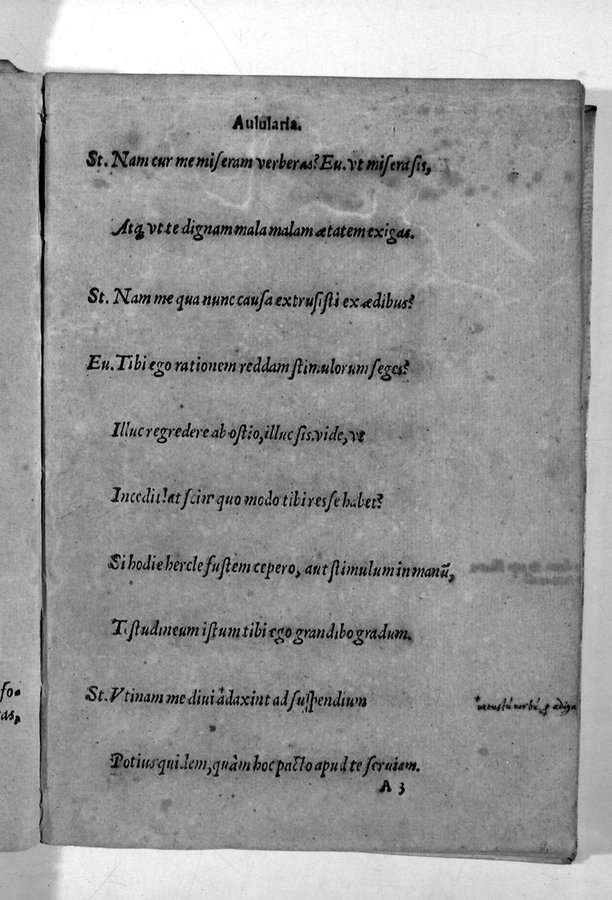 Aulularia.
St. Nam cur me miseram verberas? Eu. vt misera sis,
Atq; vt te dignam mala malam ætatem exigas.
St. Nam me qua nunc causa extrusisti ex ædibus?
Eu. Tibi ego rationem reddam stimulorum seges?
Illuc regredere ab ostio, illuc sis. vide, vt
Incedit! at scin' quo modo tibi res se habet?
Si hodie hercle fustem cepero, aut stimulum in manū,
Testudineum istum tibi ego grandibo gradum.
fo-
St. Vtinam me diui adaxint ad suspendium
as,
Potius quidem, quàm hoc pacto apud te seruiam.
A 3